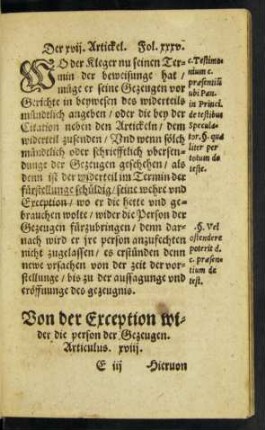 Der xvij. Artickel. Fol. xxxv.
WO der Kleger nu seinen Ter-
min der beweisunge hat /
müge er seine Gezeugen vor
Gerichte in beywesen des widerteils
mündtlich angeben / oder die bey der
Citation neben den Artickeln / dem
widerteil zusenden / Vnd wenn sölch
mündtlich oder schriefftlich vbersen-
dunge der Gezeugen geschehen / als
denn ist der widerteil im Termin der
fürstellunge schüldig / seine wehre vnd
Exception / wo er die hette vnd ge-
brauchen wolte / wider die Person der
Gezeugen fürzubringen / denn dar-
nach wird er jre person anzufechten
nicht zugelassen / es erstünden denn
newe vrsachen von der zeit der vor-
stellunge / bis zu der aussagunge vnd
eröffnunge des gezeugnis.
c. Testimo-
nium c.
præsentiū
ubi Pan.
in Princi.
de testibus
Specula-
tor. §. qua
liter per
totum de
teste.
§. Vel
ostendere
poterit d.
c. præsen-
tium de
test.
Von der Exception wi-
der die person der Gezeugen.
Articulus. xviij.
E iij Hieruon